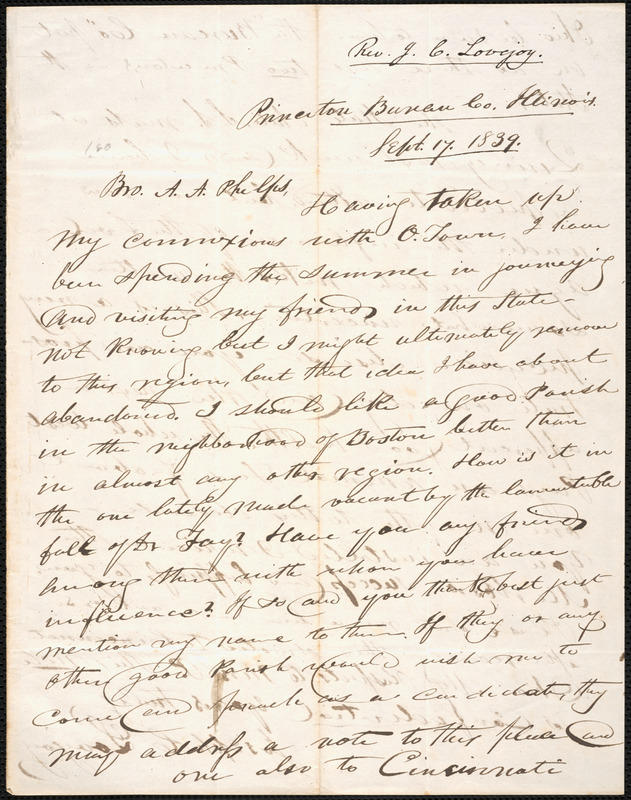 Rev. J. C. Lovejoy.
Princeton Bureau Co. Illinois.
Sept. 17. 1839.
Bro. A. A. Phelps,
Having taken up
my connexions with O. Town, I have
been spending the summer in journeying
and visiting my friends in this State -
not knowing but I might ultimately remove
to this region, but that idea I have about
abandoned. I should like a good Parish
in the neighborhood of Boston better than
in almost any other region. How is it in
the one lately made vacant by the lamentable
fall of Dr. Fay? Have you any friends
among them with whom you have
influence? If so and you think best just
mention my name to them. If they or any
other good Parish would wish me to
come and preach as a candidate, they
may address a note to this place and
one also to Cincinnati